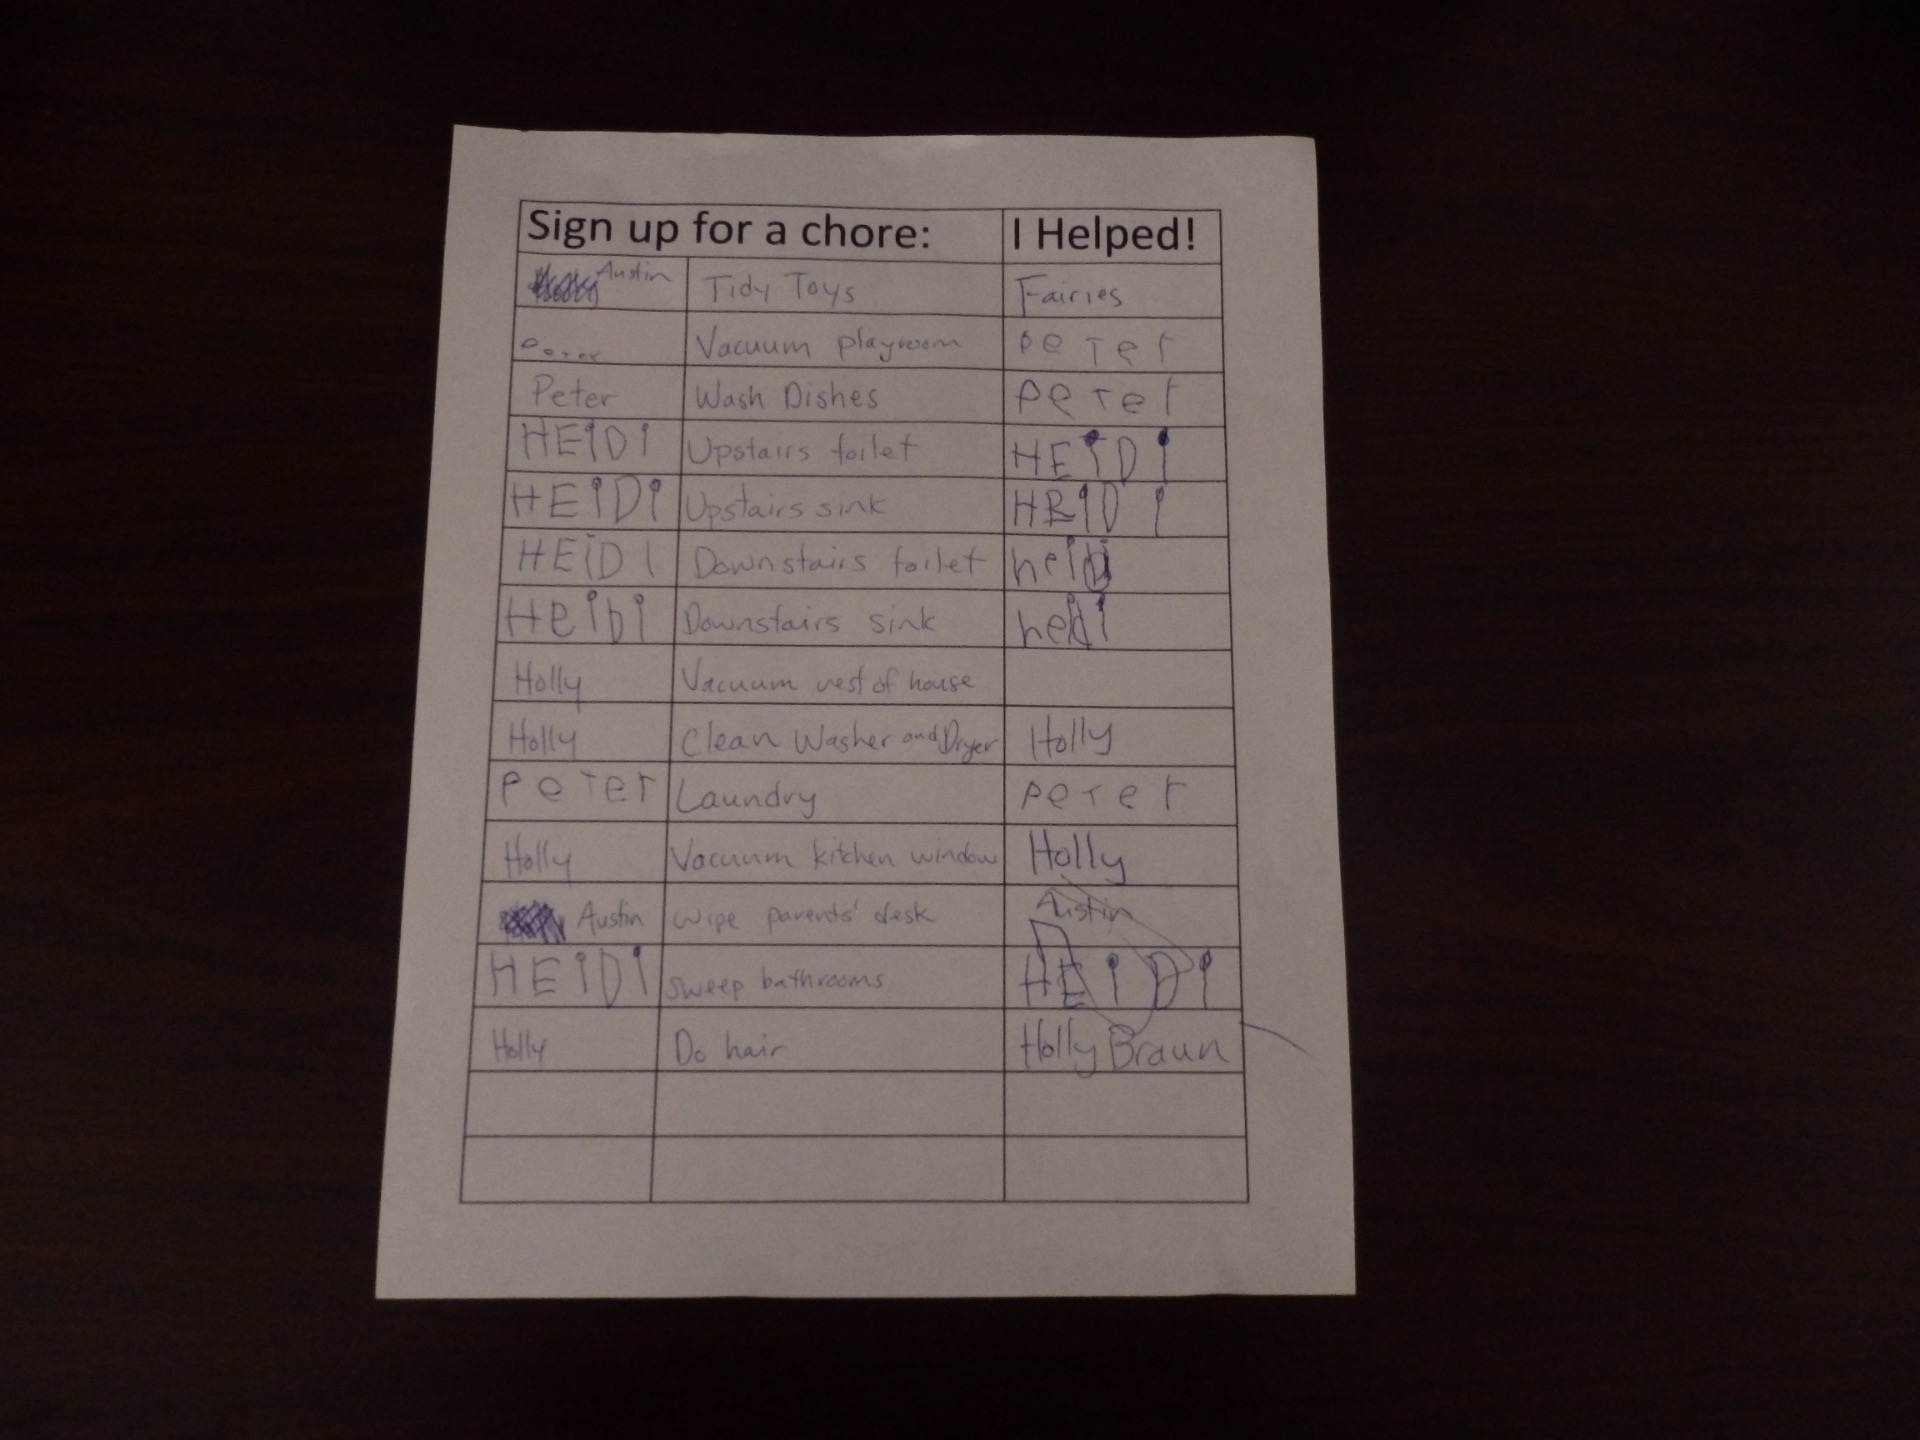 Sign up for a chore: I Helped!
Austin Tidy Toys Fairies
Peter Vacuum playroom Peter
Peter Wash Dishes PeTer
HEiDi Upstairs toilet HEiDi
HEiDi Upstairs sink HEiDi
HEiDI Downstairs toilet heidi
HeiDi Downstairs sink heidi
Holly Vacuum rest of house
Holly Clean Washer and Dryer Holly
PeTer Laundry PeTer
Holly Vacuum kitchen window Holly
Austin wipe parents' desk Austin
HEiDi sweep bathrooms HEiDi
Holly Do hair Holly Braun